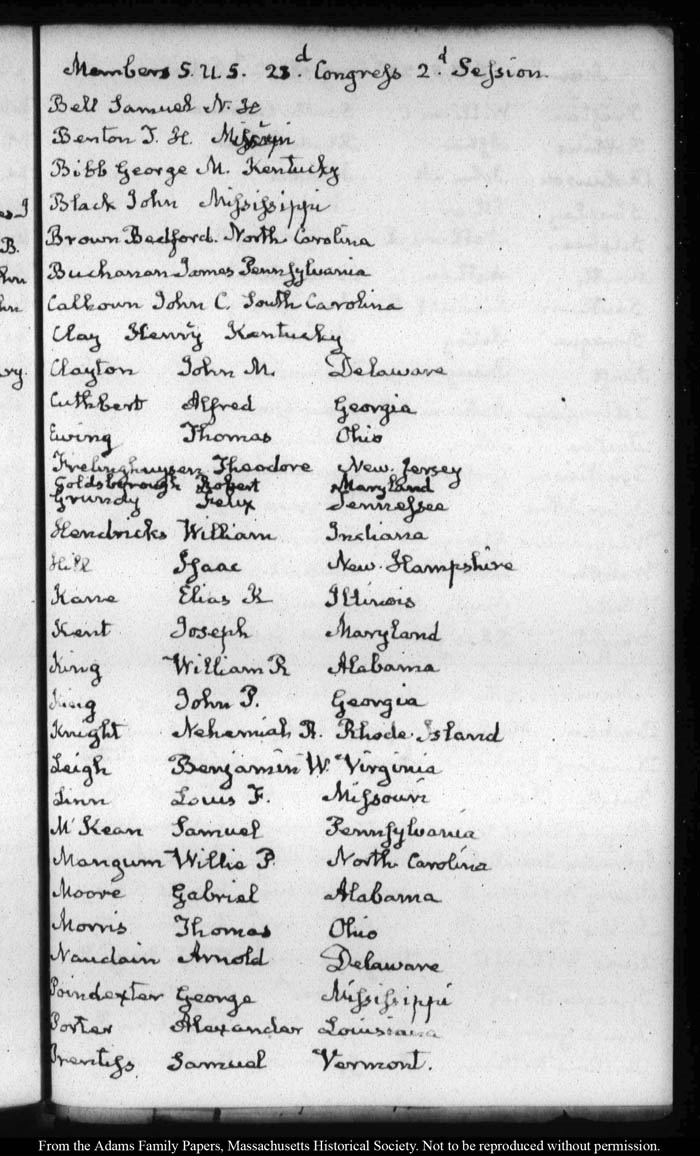 Members S. U. S. 23.d Congress 2.d Session.
Bell Samuel N. H
Benton T. H. Missouri
Bibb George M. Kentucky
Black John Mississippi
Brown Bedford. North Carolina
B.
Buchanan James Pennsylvania
Calhoun John C. South Carolina
Clay Henry Kentucky
Clayton John M. Delaware
ry.
Cuthbert Alfred Georgia
Ewing Thomas Ohio
Frelinghuysen Theodore New. Jersey
Goldsborough Robert Maryland
Grundy Felix Tennessee
Hendricks William Indiana
Hill Isaac New. Hampshire
Kane Elias K Illinois
Kent Joseph Maryland
King William R Alabama
King John P. Georgia
Knight Nehemiah R. Rhode Island
Leigh Benjamin W. Virginia
Linn Louis F. Missouri
McKean Samuel Pennsylvania
Mangum Willie P. North Carolina
Moore Gabriel Alabama
Morris Thomas Ohio
Naudain Arnold Delaware
Poindexter George Mississippi
Porter Alexander Louisiana
Prentiss Samuel Vermont.
From the Adams Family Papers, Massachusetts Historical Society. Not to be reproduced without permission.